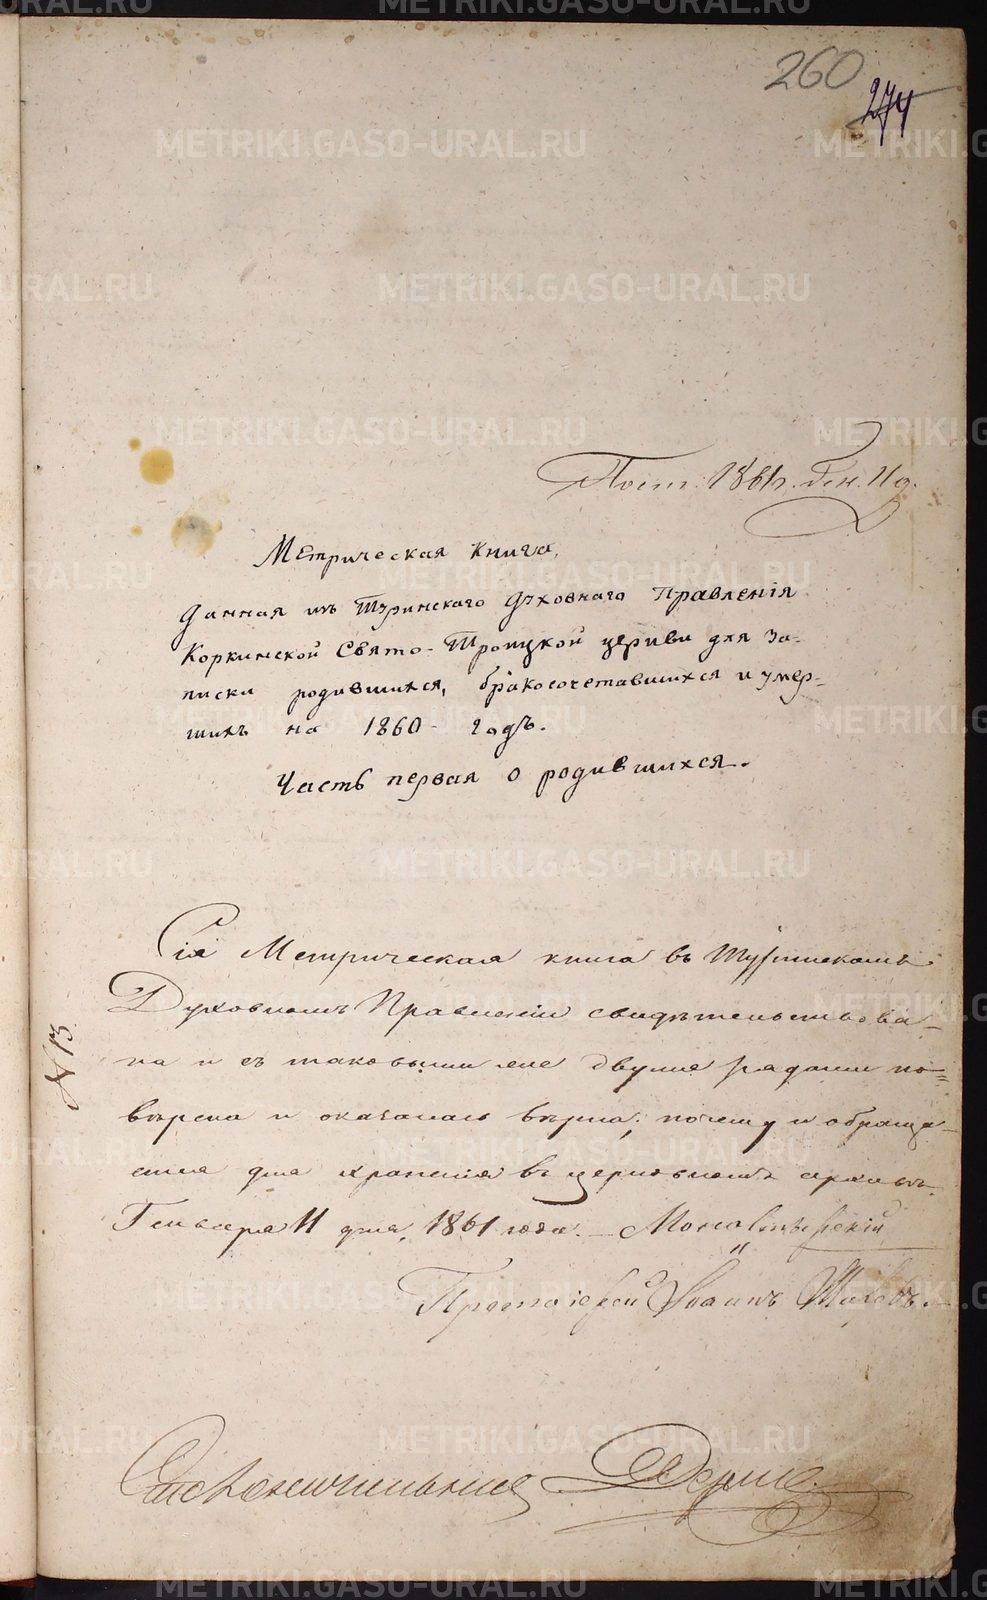 260
274
Пост. 1861 г. Ген. 11 д.
Метрическая книга,
данная изъ Туринскаго Духовнаго Правленія
Коркинской Свято-Троицкой церкви для за-
писки родившихся, бракосочетавшихся и умер-
шихъ на 1860 - годъ.
Часть первая о родившихся.
Сія Метрическая книга въ Туринскомъ
Духовномъ Правленіи свидѣтельствова-
на и съ таковыми же двумя рядами по-
вѣрена и оказалась вѣрна; почему и обраща-
ется для храненія въ церковномъ архивѣ.
Генваря 11 дня, 1861 года.
№ 13
Протоіерей Іоаннъ
METRIKI.GASO-URAL.RU